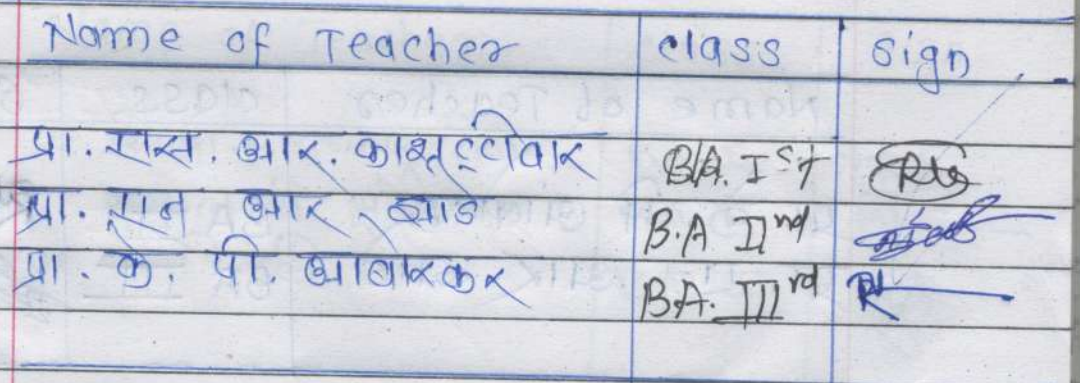 Name of Teacher class sign
प्रा. एस. आर. काशट्टीवार B.A. Ist
प्रा. एन आर झाडे B.A IInd
प्रा. के. पी. आवारकर B.A. IIIrd